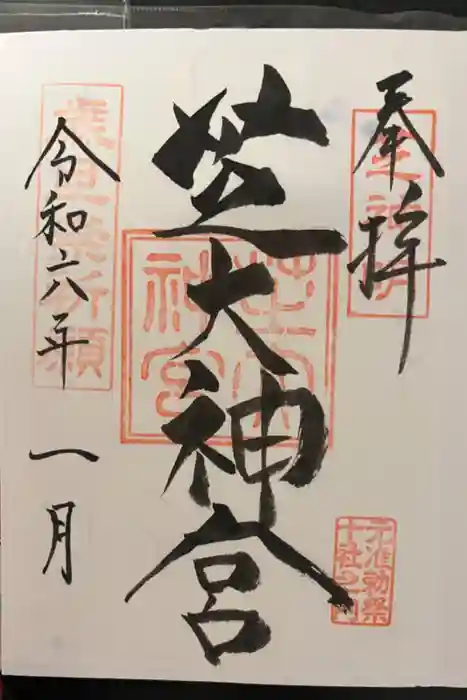 奉拝
芝大神宮
令和六年 一月
元准勅祭
十社之内